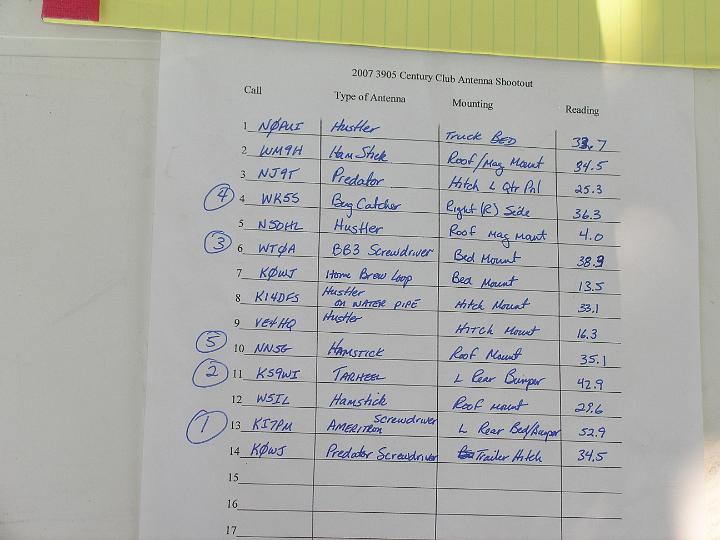 2007 3905 Century Club Antenna Shootout
Call Type of Antenna Mounting Reading
1 NØAUI Hustler Truck BED 33.7
2 WM9H HamStick Roof/Mag Mount 34.5
3 NJ9T Predator Hitch L Qtr Pnl 25.3
④ 4 WK5S Bug Catcher Right (R) Side 36.3
5 N5OHL Hustler Roof Mag Mount 4.0
③ 6 WTØA BB3 Screwdriver Bed Mount 38.9
7 KØWJ Home Brew Loop Bed Mount 13.5
8 KI4DFS Hustler on WATER PIPE Hitch Mount 33.1
9 VE4HQ Hustler HITCH Mount 16.3
⑤ 10 NN5G HAMSTICK Roof Mount 35.1
② 11 KS9WI TARHEEL L Rear Bumper 42.9
12 W5IL Hamstick Roof Mount 29.6
① 13 KI7PM AMERITRON Screwdriver L Rear Bed/Bumper 52.9
14 KØWJ Predator Screwdriver Trailer Hitch 34.5
15
16
17